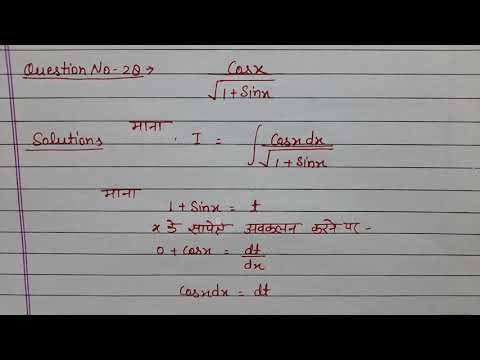 Question No-28→ Cosx/√1+Sinx
Solutions माना I = ∫ Cosxdx/√1+Sinx
माना
1+Sinx = t
x के सापेक्ष अवकलन करने पर-
0+Cosx = dt/dx
Cosxdx = dt